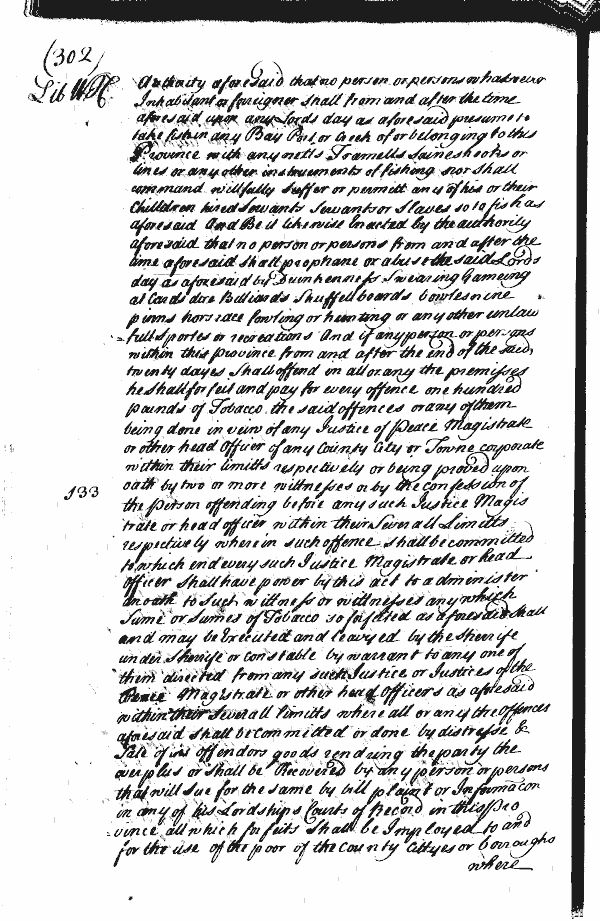 (302)
Lib W.H.
Authority aforesaid that no person or persons whatsoever
Inhabitant or foreigner shall from and after the time
aforesaid upon any Lords day as aforesaid presume to
take fish in any Bay Port or Creek of or belonging to this
Province with any netts Tramells Saines hooks or
lines or any other instruements of fishing nor shall
command willfully Suffer or permitt any of his or their
Childdren hired Servants Servants or Slaves so to fish as
aforesaid And Be it likewise Enacted by the authority
aforesaid that no person or persons from and after the
time aforesaid shall prophane or abuse the said Lords
day as aforesaid by Drunkenness Swearing Gameing
at Cards dice Billiards Shuffelboards bowles nine
pinns horsrace fowling or hunting or any other unlaw
full sportes or recreations And if any person or persons
within this province from and after the end of the said
twenty dayes Shall offend in all or any the premisses
he shall forfeit and pay for every offence one hundred
pounds of Tobacco the said offences or any of them
being done in veiw of any Justice of Peace Magistrate
or other head Officer of any County City or Towne corporate
within their limitts respectively or being proved upon
133
oath by two or more wittnesses or by the confession of
the person offending before any such Justice Magis
trate or head officer within their Severall Limitts
respectively wherein such offence shall be committed
to which end every such Justice Magistrate or head
officer shall have power by this act to administer
an oath to such wittness or wittnesses any which
Sume or Sumes of Tobacco so forfeited as aforesaid shall
and may be Executed and leavyed by the Sherrife
under Sherrife or Constable by warrant to any one of
them directed from any such Justice or Justices of the
Peace Magistrate or other head officers as aforesaid
within their severall limitts where all or any the offences
aforesaid shall be committed or done by distresse &
Sale of the offendors goods rendring the party the
overplus or shall be Recovered by any person or persons
that will sue for the same by bill plaint or Informacon
in any of his Lordships Courts of Record in this Pro
vince all which forfeits Shall be Imployed to and
for the use of the poor of the County Cittyes or borroughs
where